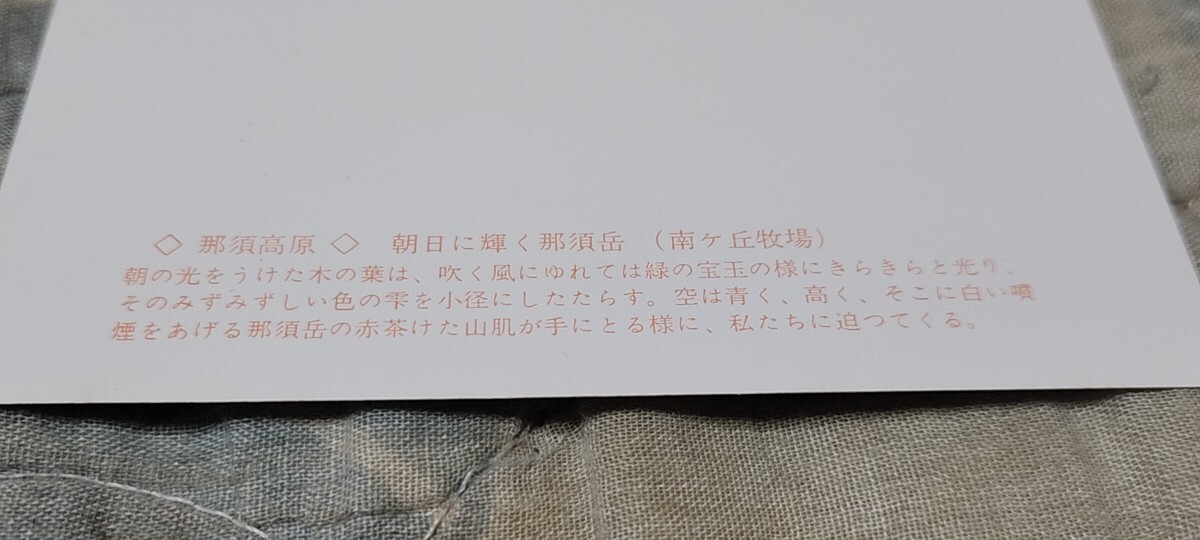 ◇ 那須高原 ◇ 朝日に輝く那須岳 （南ケ丘牧場）
朝の光をうけた木の葉は、吹く風にゆれては緑の宝玉の様にきらきらと光り、
そのみずみずしい色の雫を小径にしたたらす。空は青く、高く、そこに白い噴
煙をあげる那須岳の赤茶けた山肌が手にとる様に、私たちに迫つてくる。